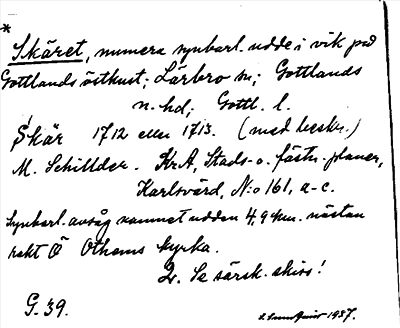 *
Skäret, numera synbarl. udde i vik på
Gottlands östkust; Lärbro sn; Gottlands
n. hd; Gottl. l.
Skär 1712 eller 1713. (med beskr.)
M. Schilder. Kr.A, Stads- o. fästn. planer,
Karlsvärd, N:o 161, a-c.
Synbarl. avsåg namnet udden 4,9 km. nästan
rakt Ö Othems kyrka.
Se särsk. skiss!
G. 39. 1937.